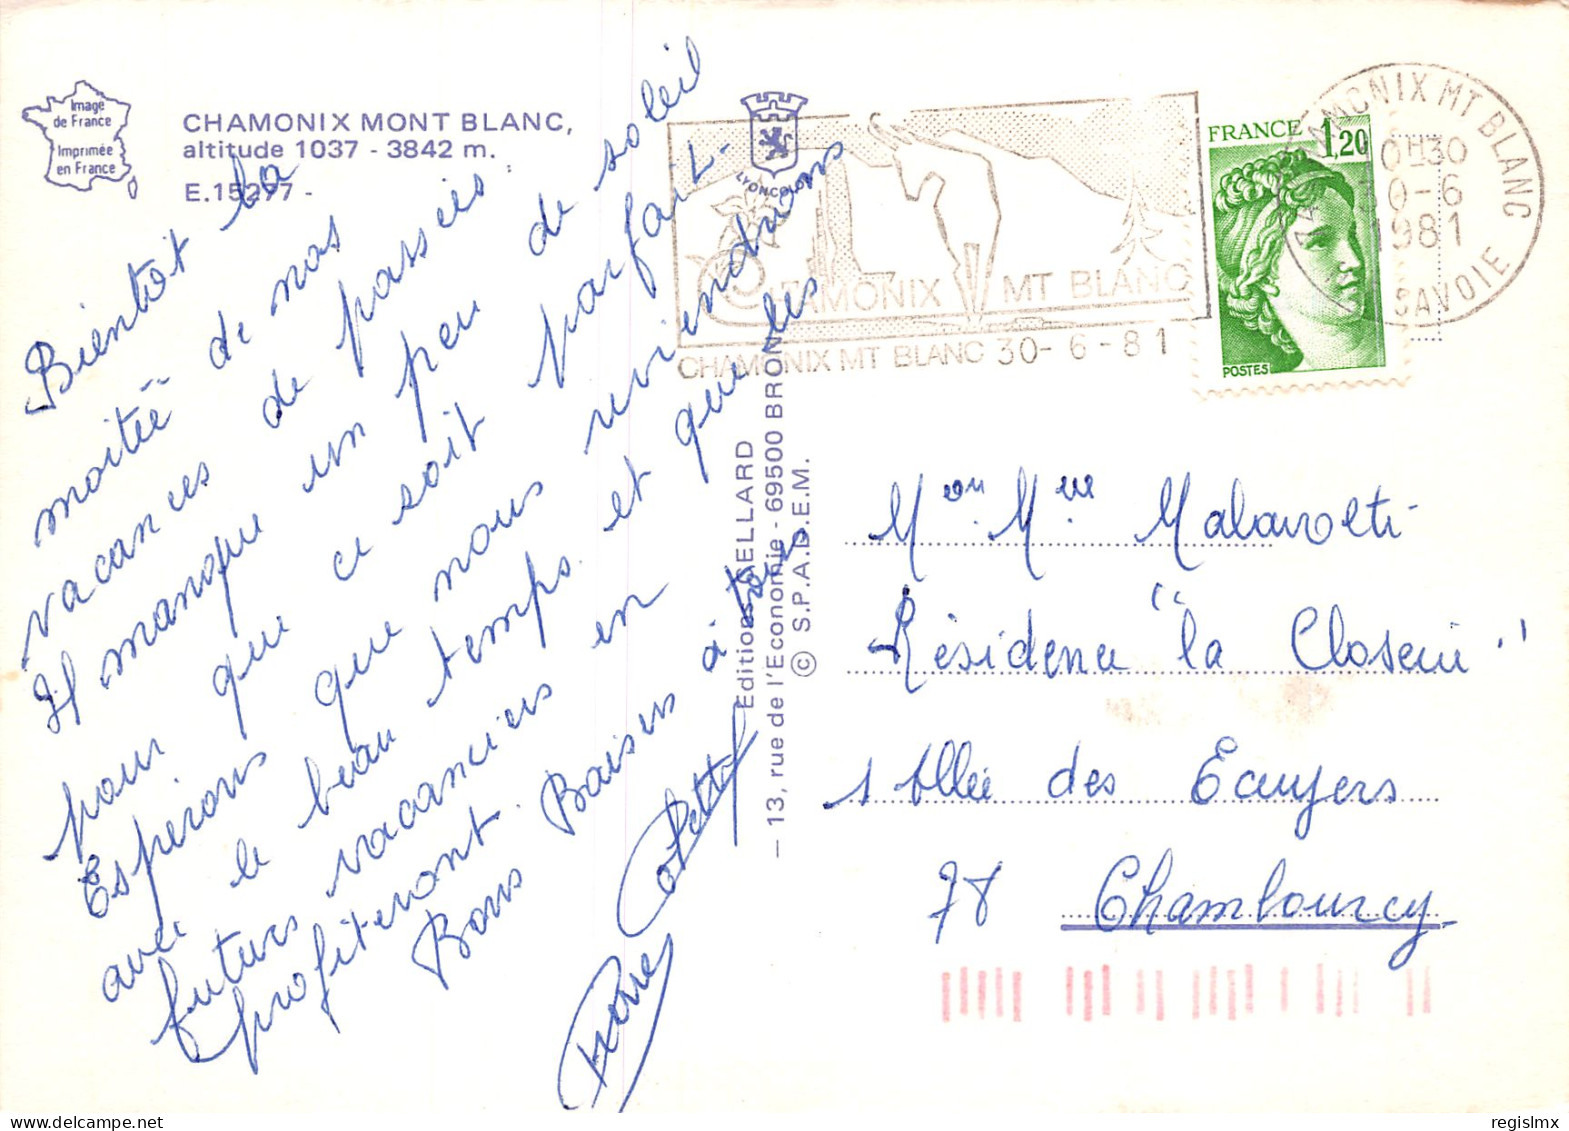 Image
de France
Imprimée
en France
CHAMONIX MONT BLANC,
altitude 1037 - 3842 m.
E.15277 -
Bientôt la
moitiée de nos
vacances de passées
Il manque un peu de soleil
pour que ce soit parfait -
Esperons que nous reviendrons
avec le beau temps. et que les
futurs vacanciers en
profiteront.
Bons Baisers à tous
Colette
Pierre
LYONCOLOR
Editions CELLARD
- 13, rue de l'Economie - 69500 BRON
© S.P.A.D.E.M.
CHAMONIX MT BLANC
CHAMONIX MT BLANC 30 - 6 - 81
FRANCE 1,20
POSTES
74 CHAMONIX MT BLANC
30-6
1981
SAVOIE
Mon. Mme Malavolti
Résidence "la Closerie"
1 Allée des Ecuyers
78 Chambourcy
regislmx